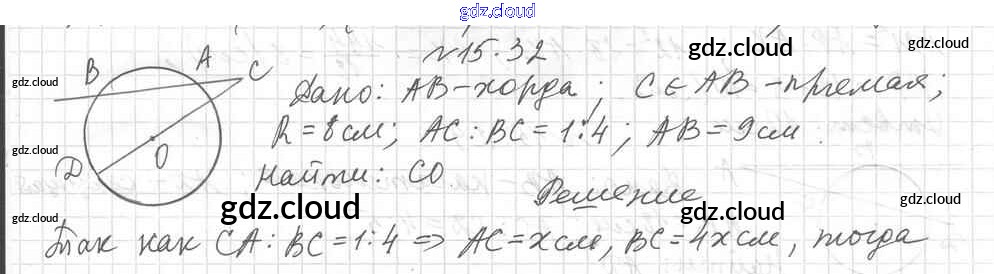 gdz.cloud
№15.32
gdz.cloud
B A C
gdz.cloud
gdz.cloud
gdz.cloud
Дано: AB-хорда; C∈AB-прямая;
R=8см; AC:BC=1:4; AB=9см.
gdz.cloud
D O
Найти: CO
gdz.cloud
Решение
gdz.cloud
gdz.cloud
gdz.cloud
Так как CA:BC=1:4 ⇒ AC=xсм, BC=4xсм, тогда